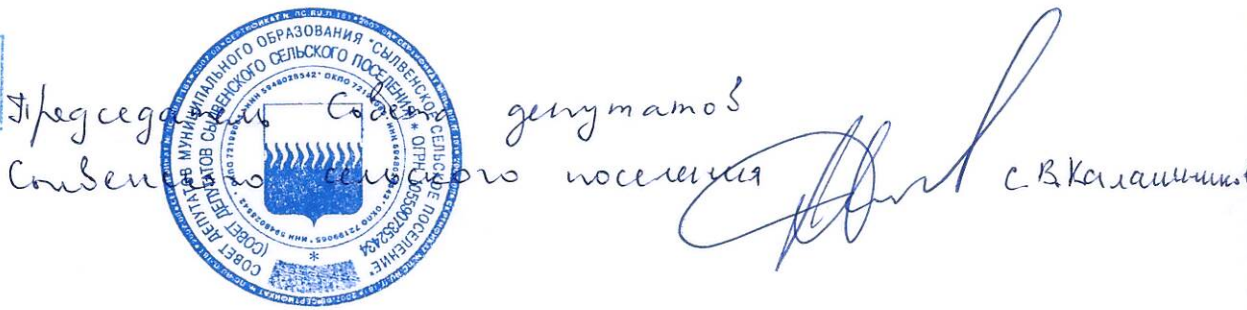 Председатель Совета депутатов
Сылвенского сельского поселения С.В.Калашников
СОВЕТ ДЕПУТАТОВ МУНИЦИПАЛЬНОГО ОБРАЗОВАНИЯ "СЫЛВЕНСКОЕ СЕЛЬСКОЕ ПОСЕЛЕНИЕ"
(СОВЕТ ДЕПУТАТОВ СЫЛВЕНСКОГО СЕЛЬСКОГО ПОСЕЛЕНИЯ) * ОГРН 1055907352434
ИНН 5948028542 * ОКПО 72199065